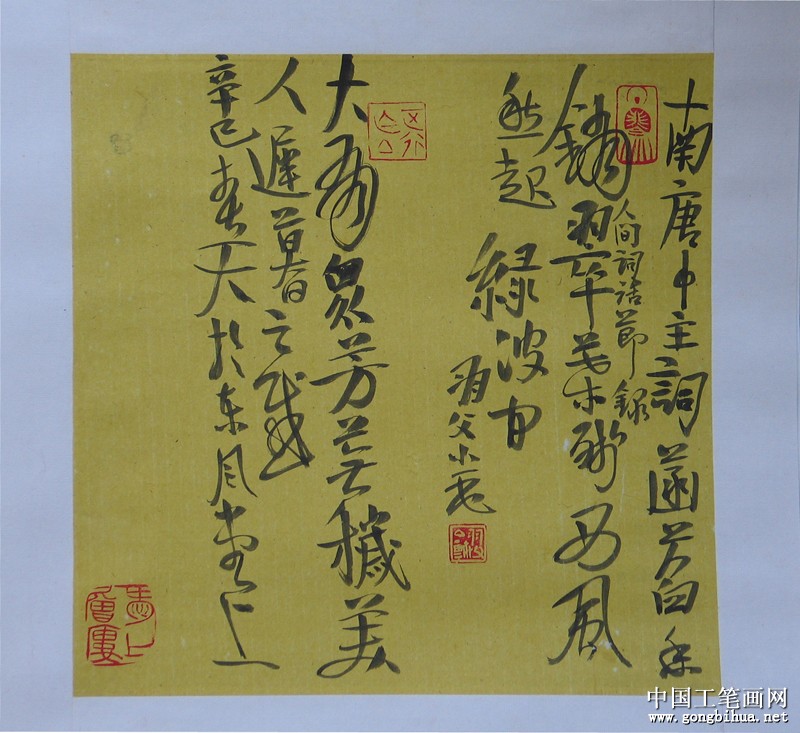 南唐中主詞菡萏香
銷翠葉殘西風
人间詞話節錄
愁起綠波间
父小
大有眾芳芜穢美
人遲暮之感
辛巳春天於东风堂上
中国工笔画网
www.gongbihua.net